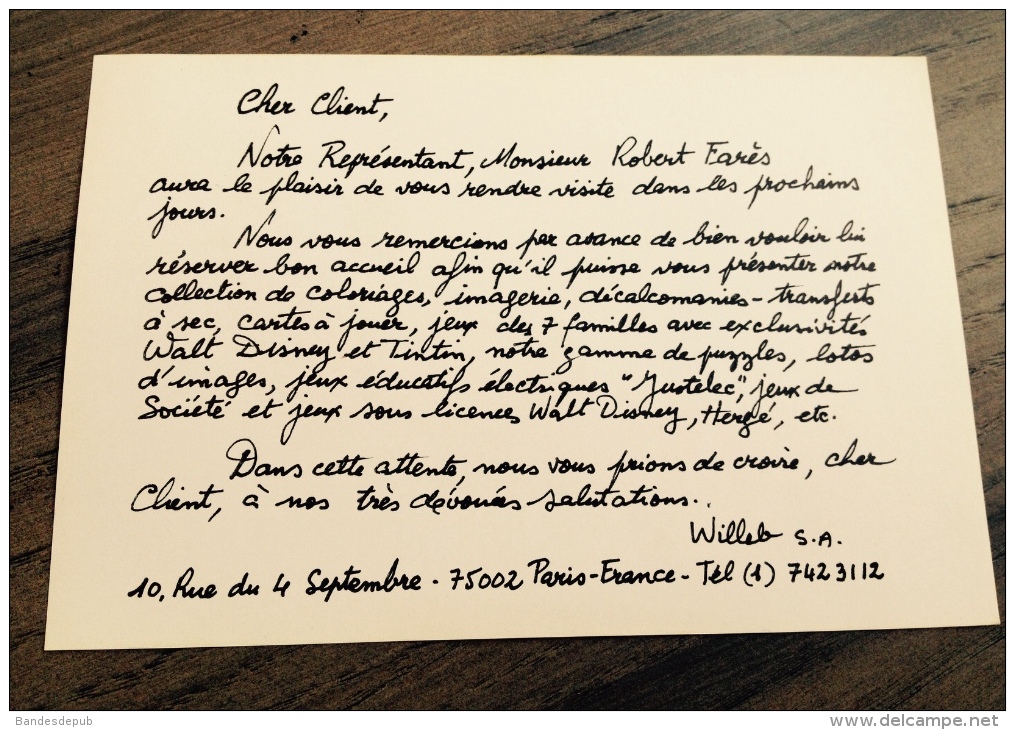 Cher Client,
Notre Représentant, Monsieur Robert Farès
aura le plaisir de vous rendre visite dans les prochains
jours.
Nous vous remercions par avance de bien vouloir lui
réserver bon accueil afin qu'il puisse vous présenter notre
collection de coloriages, imagerie, décalcomanies - transferts
à sec, cartes à jouer, jeux des 7 familles avec exclusivités
Walt Disney et Tintin, notre gamme de puzzles, lotos
d'images, jeux éducatifs électriques "Justelec", jeux de
Société et jeux sous licences Walt Disney, Hergé, etc.
Dans cette attente, nous vous prions de croire, cher
Client, à nos très dévouées salutations..
Willeb S.A.
10, Rue du 4 Septembre - 75002 Paris-France - Tél (1) 742 3112
Bandesdepub
www.delcampe.net